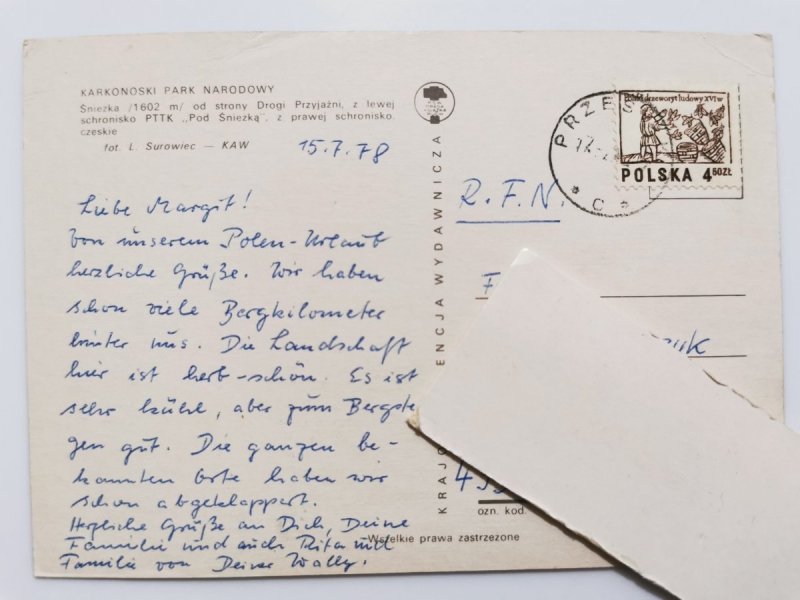 KARKONOSKI PARK NARODOWY
Śnieżka /1602 m/ od strony Drogi Przyjaźni, z lewej
schronisko PTTK „Pod Śnieżką", z prawej schronisko
czeskie
fot. L. Surowiec — KAW
15.7.78
Liebe Margit!
Von unserem Polen-Urlaub
herzliche Grüße. Wir haben
schon viele Bergkilometer
hinter uns. Die Landschaft
hier ist herb-schön. Es ist
sehr kühl, aber zum Bergste
gen gut. Die ganzen be-
kannten Orte haben wir
schon abgeklappert.
Herzliche Grüße an Dich, Deine
Familie und auch Rita mit
Familie von Deine Wally.
ENCJA WYDAWNICZA
KRAJO
POLSKA 4 60 ZŁ
drzeworyt ludowy XVI w
PRZES
C
R. F. N.
F
ozn. kod.
Wszelkie prawa zastrzeżone